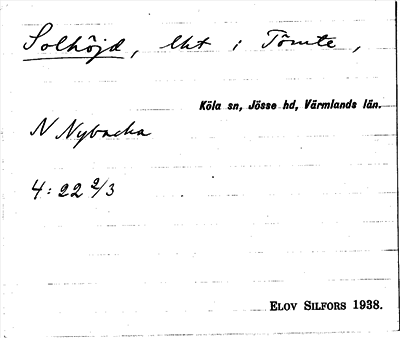 Solhöjd, lht i Tömte,
Köla sn, Jösse hd, Värmlands län.
N Nybacka
4:22 2/3
ELOV SILFORS 1938.